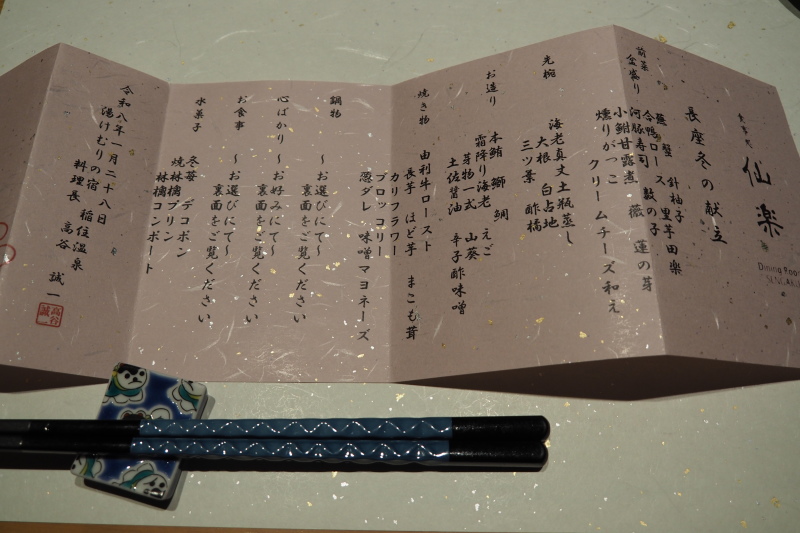 食事処
仙楽
Dining Roo
SENGAKU
長座冬の献立
前菜
盆盛り
蕪 蟹 針柚子 里芋田楽
合鴨ロース 数の子
河豚寿司 薇 蓮の芽
小鮒甘露煮
燻りがっこ クリームチーズ和え
先椀
海老真丈土瓶蒸し
大根 白占地
三ツ葉 酢橘
お造り
本鮪 鰤 鯛
霜降り海老 えご
芽物一式 山葵
土佐醤油 辛子酢味噌
焼き物
由利牛ロースト
長芋 ほど芋 まこも茸
カリフラワー
ブロッコリー
葱ダレ 味噌マヨネーズ
鍋物
〜お選びにて〜
裏面をご覧ください
心ばかり
〜お好みにて〜
裏面をご覧ください
お食事
〜お選びにて〜
裏面をご覧ください
水菓子
冬苺 デコポン
焼林檎プリン
林檎コンポート
令和八年一月二十八日
湯けむりの宿 稲住温泉
料理長 高谷 誠一
高谷誠一